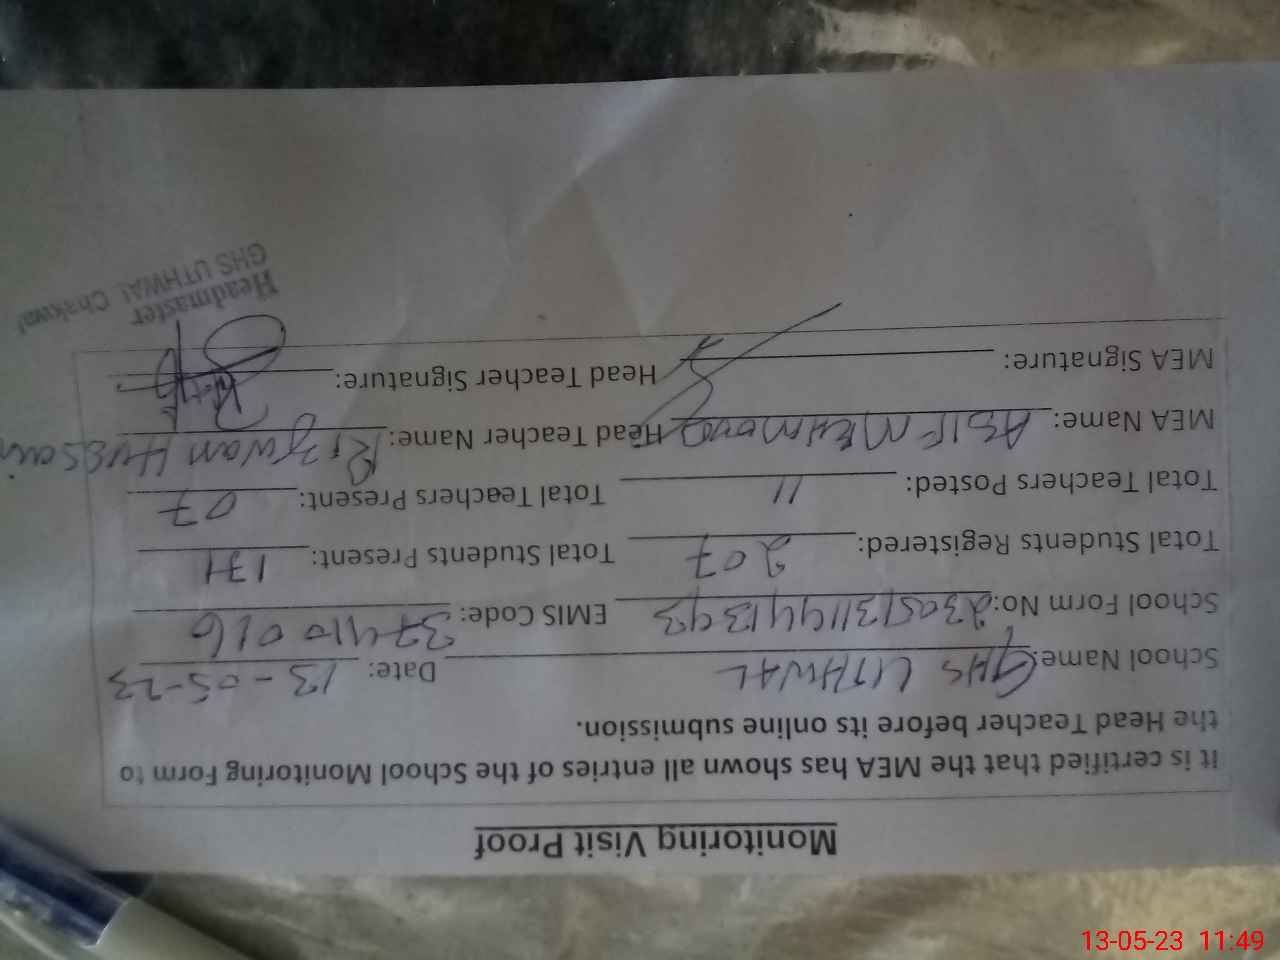 Monitoring Visit Proof
It is certified that the MEA has shown all entries of the School Monitoring Form to
the Head Teacher before its online submission.
School Name: GHS UTHWAL Date: 13-05-23
School Form No: 23051311441393 EMIS Code: 37410016
Total Students Registered: 207 Total Students Present: 171
Total Teachers Posted: 11 Total Teachers Present: 07
MEA Name: ASIF MEHMOOD Head Teacher Name: Rizwan Hussain
MEA Signature: Head Teacher Signature:
Headmaster
GHS UTHWAL Chakwal
13-05-23 11:49